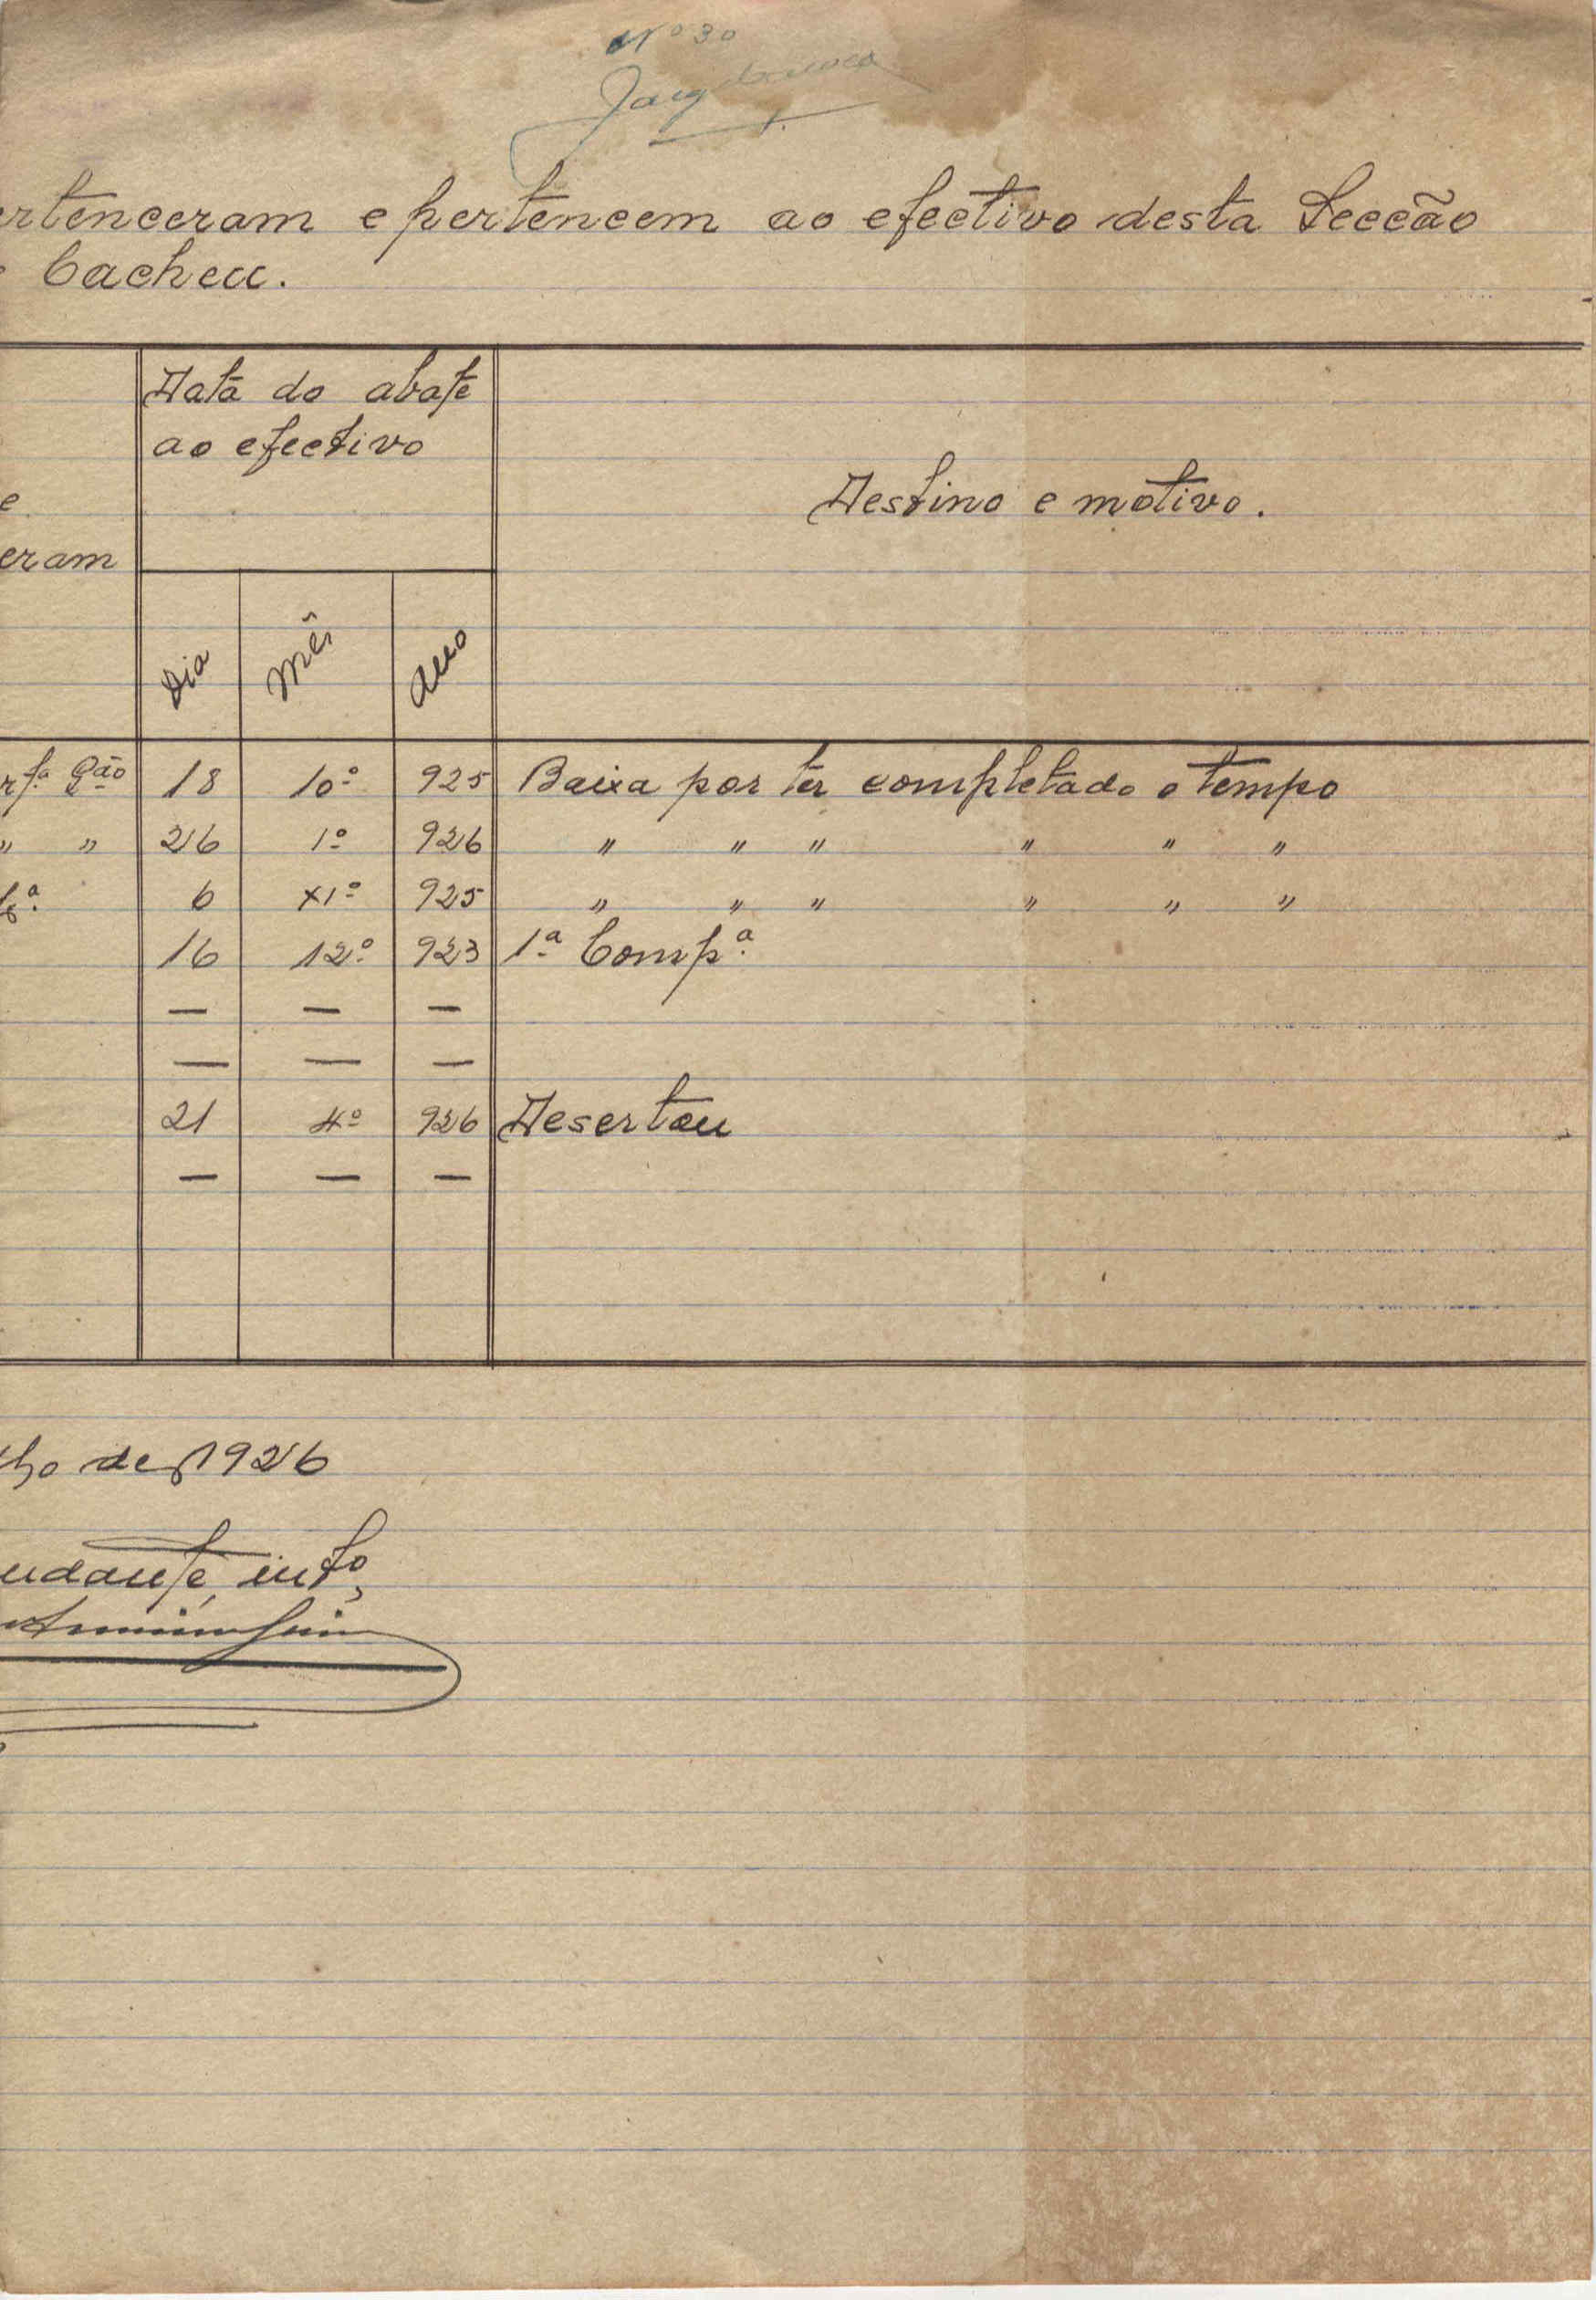 Nº 30
ertenceram e pertencem ao efectivo desta Secção
Cacheu.
Data do abate
ao efectivo
Destino e motivo.
e
eram
Dia Mês Ano
rfª Gão 18 10º 925 Baixa por ter completado o tempo
" " 26 1º 926 " " " " " "
6 XIº 925 " " " " " "
16 12º 923 1ª Compª
— — —
— — —
21 4º 926 Desertou
— — —
lho de 1926
udante, intº,